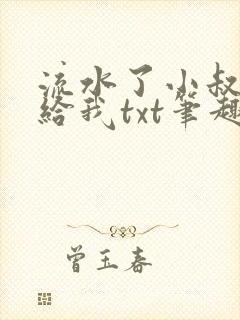 流水了小叔
給我txt筆趣
曾玉春